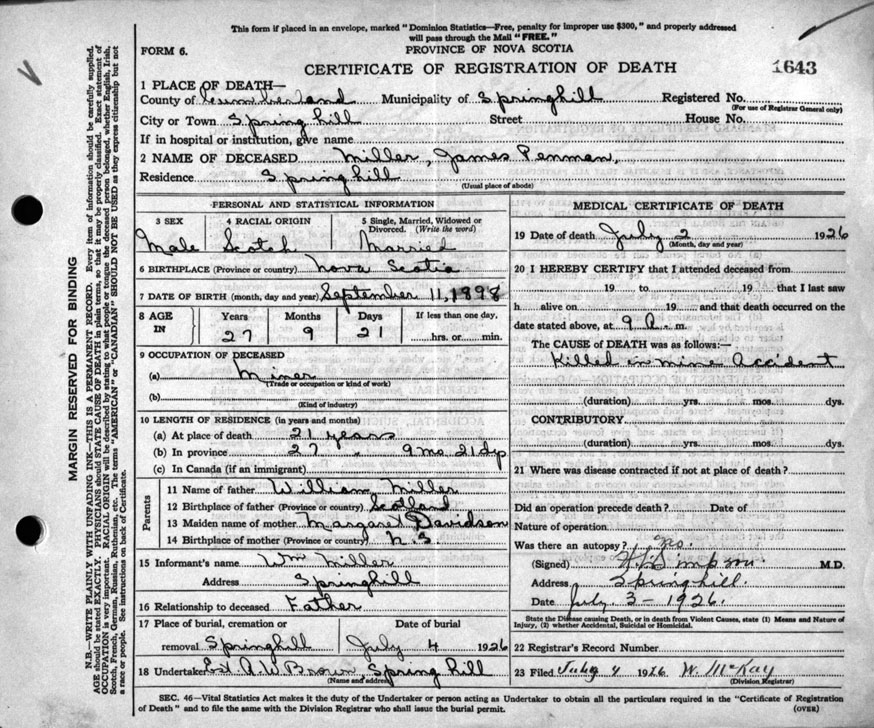 This form if placed in an envelope, marked "Dominion Statistics—Free, penalty for improper use $300," and properly addressed
will pass through the Mail "FREE."
FORM 6.
PROVINCE OF NOVA SCOTIA
CERTIFICATE OF REGISTRATION OF DEATH
1643
1 PLACE OF DEATH—
County of Cumberland Municipality of Springhill Registered No.
(For use of Registrar General only)
City or Town Spring hill Street House No.
If in hospital or institution, give name
2 NAME OF DECEASED Miller, James Penman,
Residence Springhill
(Usual place of abode)
PERSONAL AND STATISTICAL INFORMATION
3 SEX 4 RACIAL ORIGIN 5 Single, Married, Widowed or
Divorced. (Write the word)
Male Scotch Married
6 BIRTHPLACE (Province or country) Nova Scotia
7 DATE OF BIRTH (month, day and year) September 11, 1898
8 AGE IN Years Months Days If less than one day,
27 9 21 hrs. or min.
9 OCCUPATION OF DECEASED
(a) Miner
(Trade or occupation or kind of work)
(b)
(Kind of industry)
10 LENGTH OF RESIDENCE (in years and months)
(a) At place of death 21 years
(b) In province 27 " 9 mo. 21 dy
(c) In Canada (if an immigrant)
Parents
11 Name of father William Miller
12 Birthplace of father (Province or country) Scotland
13 Maiden name of mother Margaret Davidson
14 Birthplace of mother (Province or country) N.S
15 Informant's name Wm Miller
Address Springhill
16 Relationship to deceased Father
17 Place of burial, cremation or removal Date of burial
Springhill July 4 1926
18 Undertaker A. W Brown, Spring hill
(Name and address)
MEDICAL CERTIFICATE OF DEATH
19 Date of death July 2 1926
(Month, day and year)
20 I HEREBY CERTIFY that I attended deceased from
19 to 19 that I last saw
h alive on 19 and that death occurred on the
date stated above, at 9 A. m.
The CAUSE of DEATH was as follows:
Killed in mine accident
(duration) yrs. mos. dys.
CONTRIBUTORY
(duration) yrs. mos. dys.
21 Where was disease contracted if not at place of death?
Did an operation precede death? Date of
Nature of operation
Was there an autopsy?
(Signed) M.D.
Address Springhill.
Date July 3 - 1926.
State the Disease causing Death, or in death from Violent Causes, state (1) Means and Nature of
Injury, (2) whether Accidental, Suicidal or Homicidal.
22 Registrar's Record Number
23 Filed July 4 1926 W. McKay
(Division Registrar)
SEC. 46—Vital Statistics Act makes it the duty of the Undertaker or person acting as Undertaker to obtain all the particulars required in the "Certificate of Registration
of Death" and to file the same with the Division Registrar who shall issue the burial permit. (OVER)
MARGIN RESERVED FOR BINDING
N.B.—WRITE PLAINLY WITH UNFADING INK—THIS IS A PERMANENT RECORD. Every item of information should be carefully supplied.
AGE should be stated EXACTLY. PHYSICIANS should STATE CAUSE OF DEATH in plain terms, so that it may be properly classified. Exact statement of
OCCUPATION is very important. RACIAL ORIGIN will be described by stating to what people or tongue the deceased person belonged, whether English, Irish,
Scotch, French, German, Russian, Ruthenian, etc. The terms "AMERICAN" or "CANADIAN" SHOULD NOT BE USED as they express citizenship but not
a race or people. See instructions on back of Certificate.